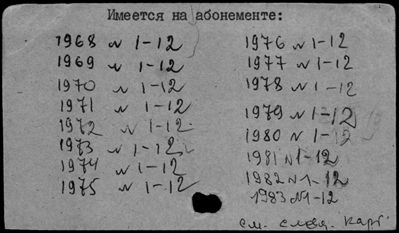 Имеется на абонементе:
1968 № 1-12
1969 № 1-12
1970 № 1-12
1971 № 1-12
1972 № 1-12
1973 № 1-12
1974 № 1-12
1975 № 1-12
1976 № 1-12
1977 № 1-12
1978 № 1-12
1979 № 1-12
1980 № 1-12
1981 № 1-12
1982 № 1-12
1983 № 1-12
см. след. карт.